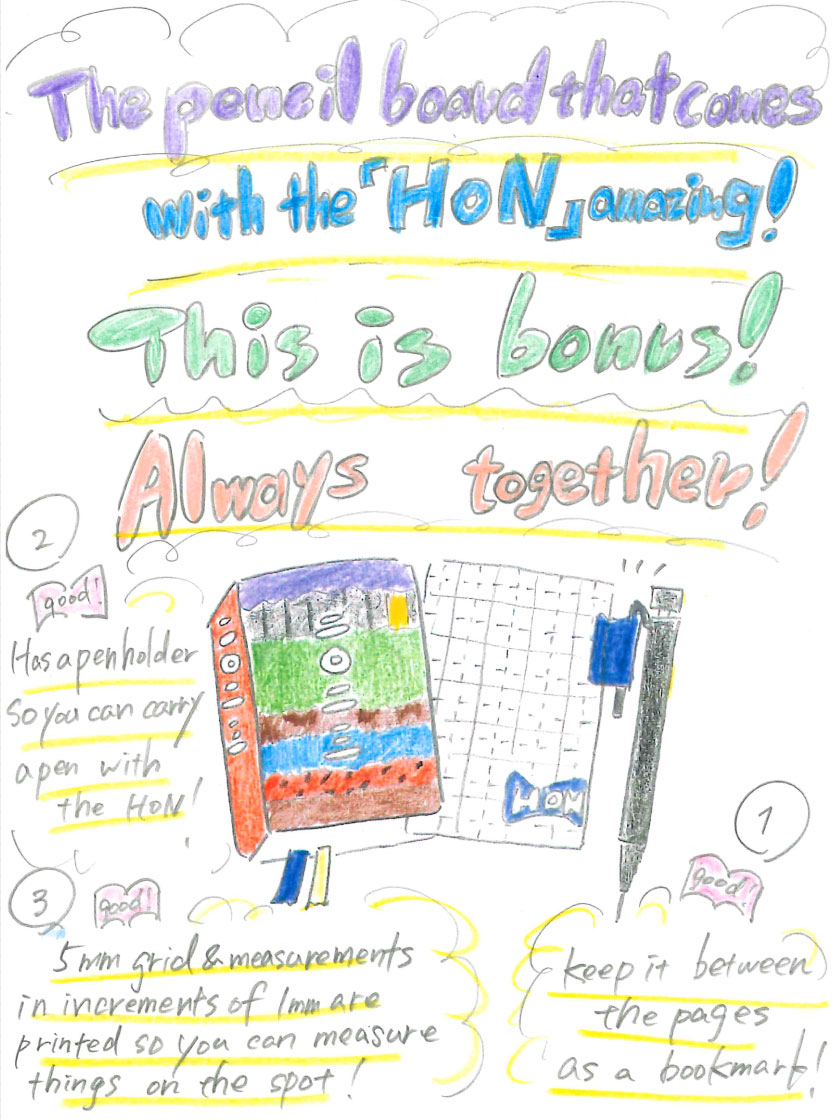 The pencil board that comes
with the「HoN」amazing!
This is bonus!
Always together!
2
good!
Has a penholder
so you can carry
a pen with
the HoN!
HON
1
good!
keep it between
the pages
as a bookmark!
3
good!
5mm grid & measurements
in increments of 1mm are
printed so you can measure
things on the spot!